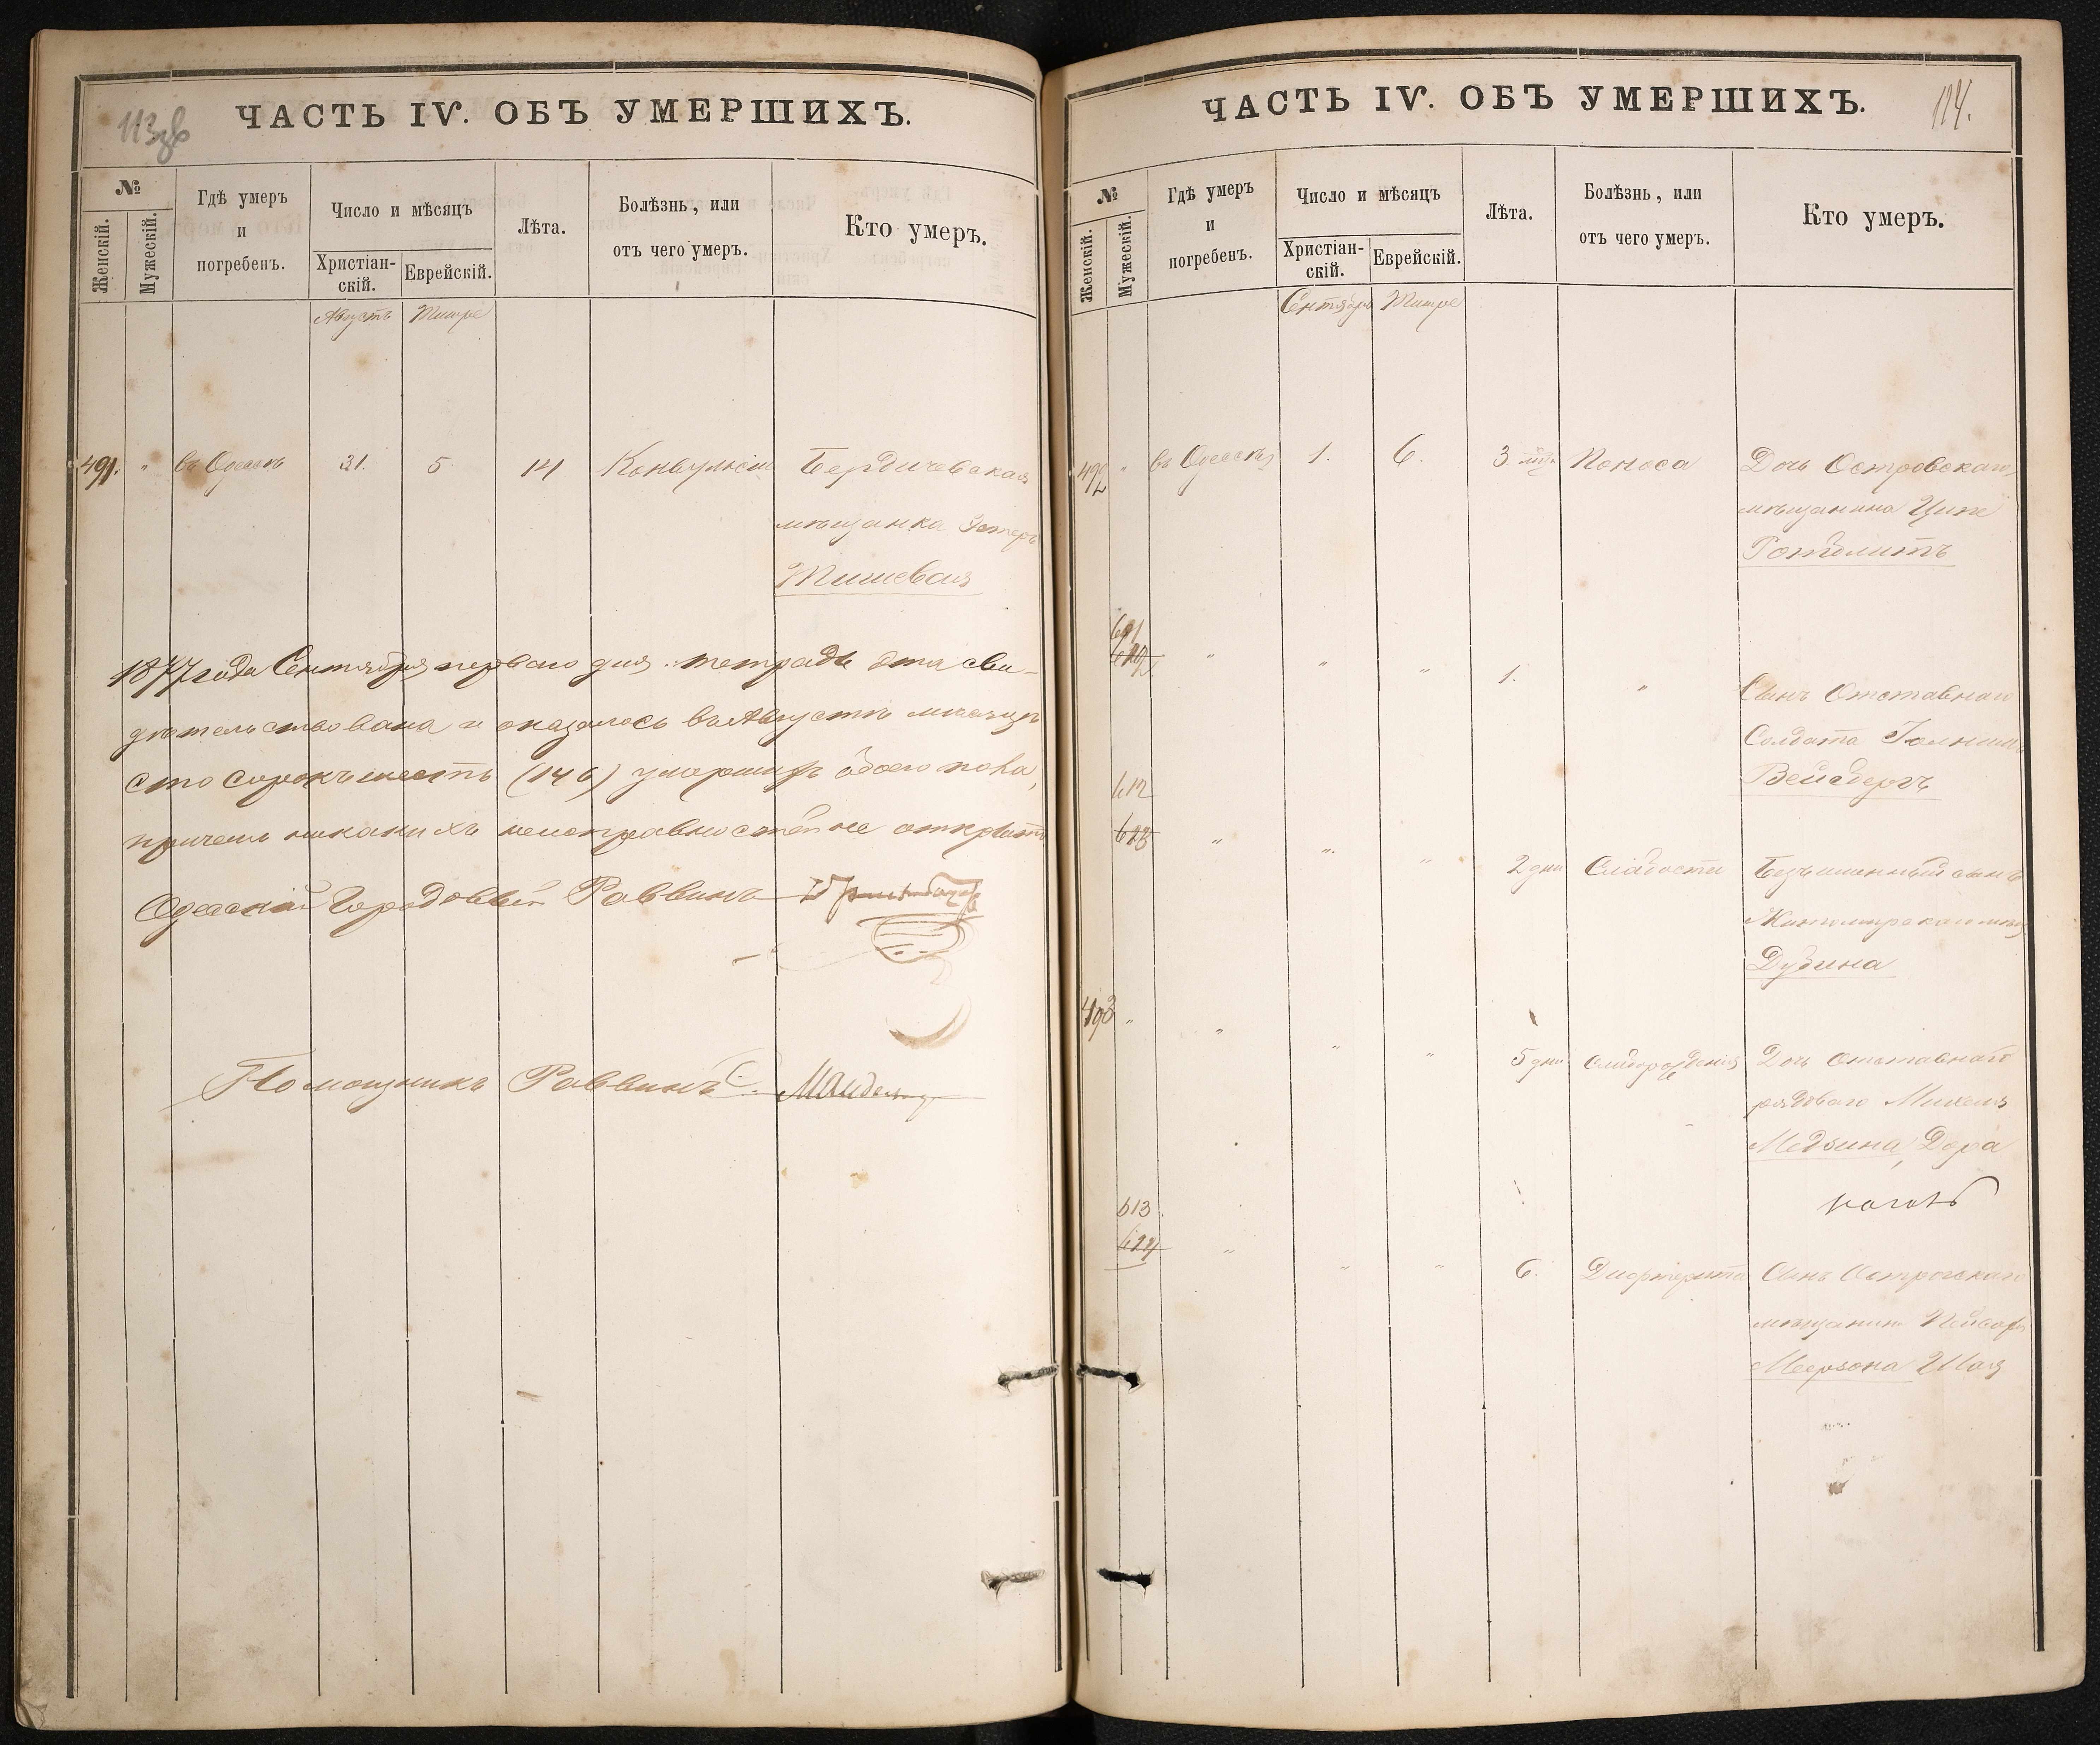 113зв
ЧАСТЬ IV. ОБЪ УМЕРШИХЪ.
№
Женскій.
Мужескій.
Гдѣ умеръ
и
погребенъ.
Число и мѣсяцъ
Христіан-
скій.
Еврейскій.
Лѣта.
Болѣзнь, или
отъ чего умеръ.
Кто умеръ.
Августъ Тишре
491. " въ Одессѣ 31. 5. 14 Конвульсіи Бердичевская
мѣщанка Эстеръ
Тишевская
1877 года Сентября перваго дня тетрадь эта сви-
дѣтельствована и оказалось въ Августѣ мѣсяцѣ
сто сорокъ шесть (146) умершихъ обоего пола,
причемъ никакихъ неисправностей не открыто
Одесскій Городовый Раввинъ
Помощникъ Раввина
ЧАСТЬ IV. ОБЪ УМЕРШИХЪ.
114.
№
Женскій.
Мужескій.
Гдѣ умеръ
и
погребенъ.
Число и мѣсяцъ
Христіан-
скій.
Еврейскій.
Лѣта.
Болѣзнь, или
отъ чего умеръ.
Кто умеръ.
Сентябрь Тишре
492 " въ Одессѣ 1. 6. 3 Поноса Дочь Островскаго
мѣщанина Ципе
" " " 1. " Сынъ Отставнаго
Солдата
Вейсбергъ
612
" " " 2 дни Слабости Безъименный сынъ
Житомирскаго мѣщ
Дубина
493 " " " " 5 дни Дочь отставнаго
рядоваго Михеля
Медзина, Дора
613
624
" " " 6. Дифтерита Сынъ Острогскаго
мѣщанина
Меерзона Шая